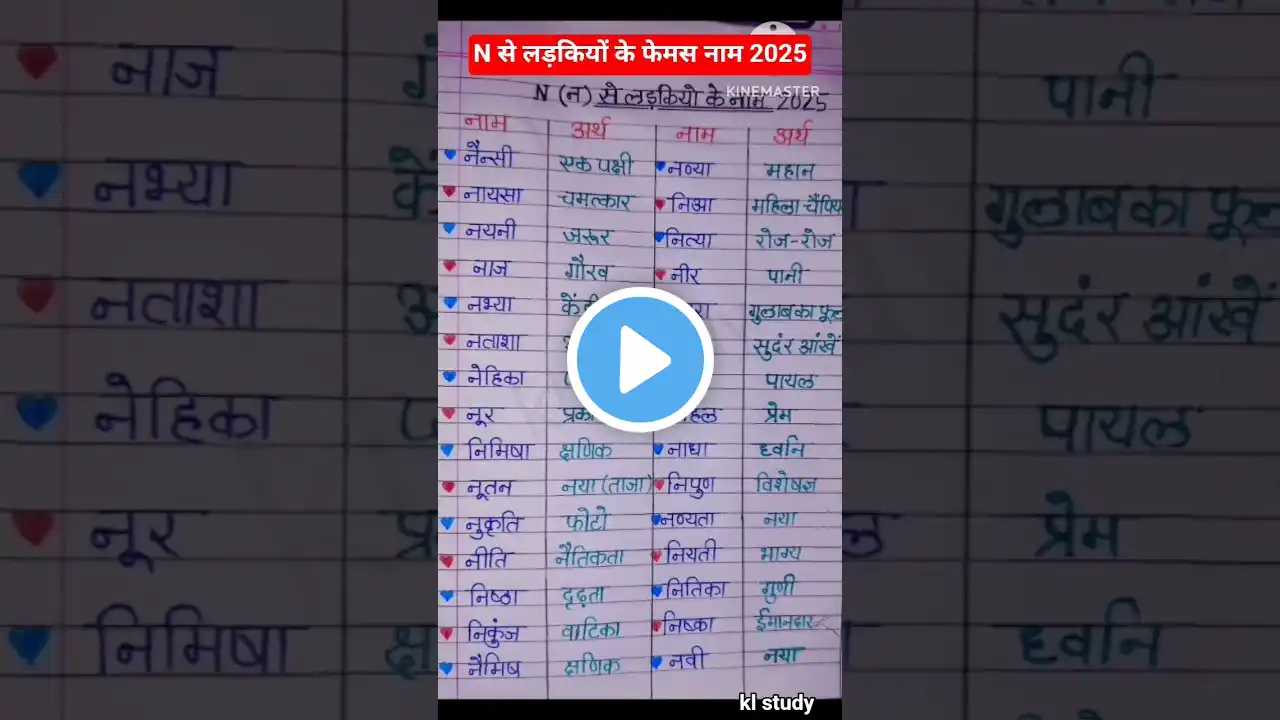 N से लड़कियों के फेमस नाम 2025
KINEMASTER
N (न) से लड़कियो के नाम 2025
नाम अर्थ नाम अर्थ
नैन्सी एक पक्षी नव्या महान
नायसा चमत्कार निआ महिला चैंपिय
नयनी जरूर नित्या रोज-रोज
नाज गौरव नीर पानी
नभ्या गुलाब का फूल
नताशा सुदंर आंखें
नेहिका पायल
नूर प्रेम
निमिषा क्षणिक नाधा ध्वनि
नूतन नया (ताजा) निपुण विशेषज्ञ
नुकृति फोटो नव्यता नया
नीति नैतिकता नियती भाग्य
निष्ठा दृढ़ता नितिका गुणी
निकुंज वाटिका निष्का ईमानदार
नैमिष क्षणिक नवी नया
kl study